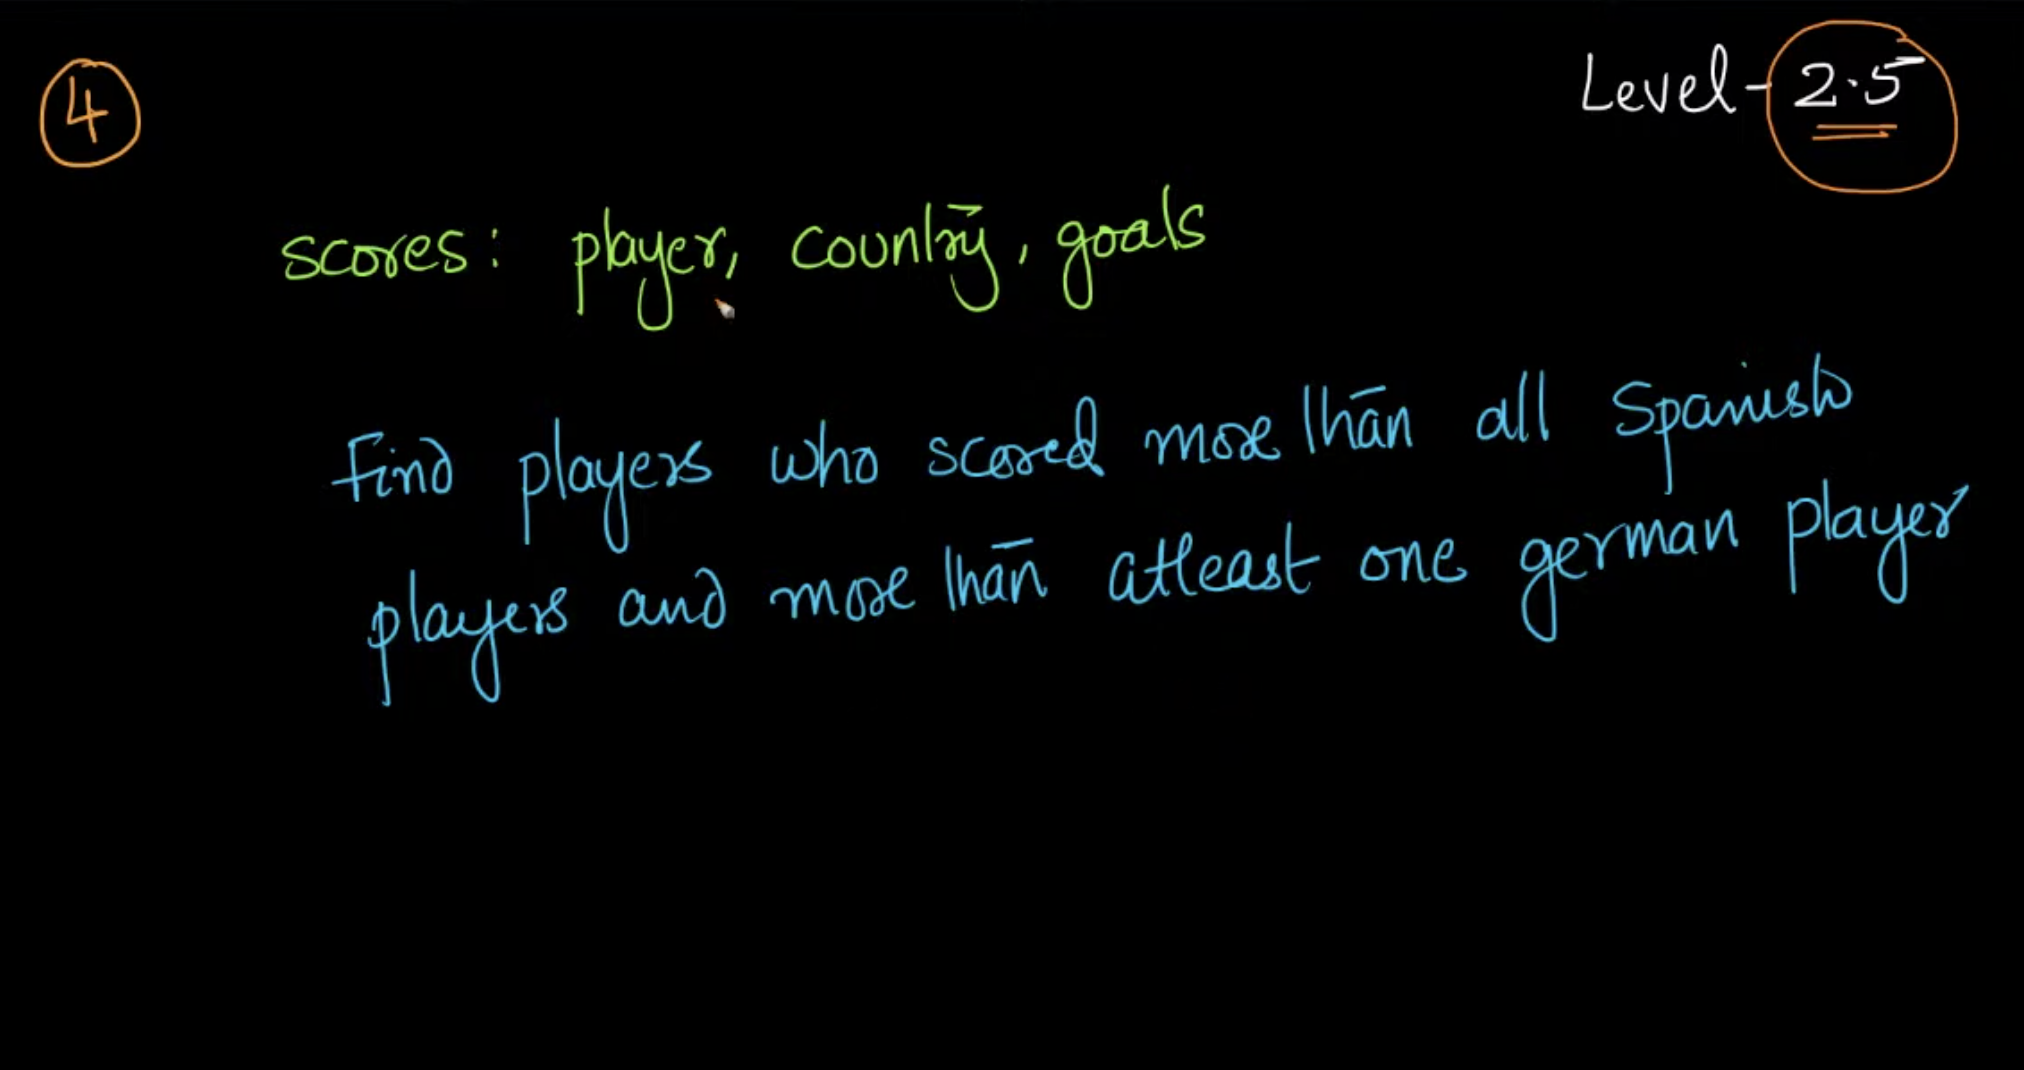 4
Level - 2.5
scores: player, country, goals
Find players who scored more than all Spanish
players and more than atleast one german player